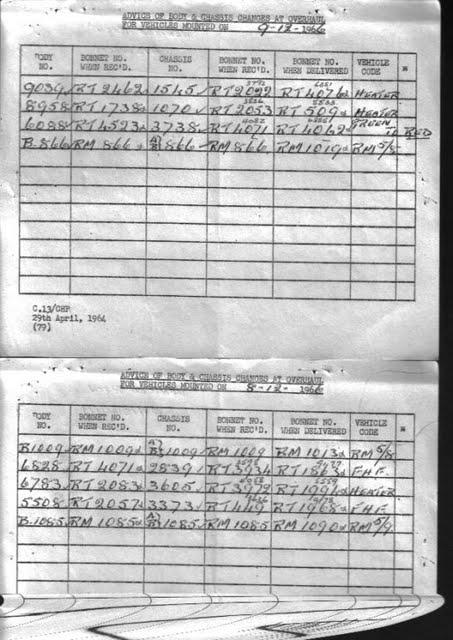 ADVICE OF BODY & CHASSIS CHANGES AT OVERHAUL
FOR VEHICLES MOUNTED ON 9-12-1966
BODY NO. BONNET NO. WHEN REC'D. CHASSIS NO. BONNET NO. WHEN REC'D. BONNET NO. WHEN DELIVERED VEHICLE CODE
9039 RT 2462 1545 RT 2022 RT 4076 HEATER
8958 RT 1738 1070 RT 2053 RT 500 HEATER
6088 RT 4523 3738 RT 4071 RT 4042 GREEN TO RED
B.866 RM 866 866 RM 866 RM 1079 RM 5/8
C.13/CHP
29th April, 1964
(79)
ADVICE OF BODY & CHASSIS CHANGES AT OVERHAUL
FOR VEHICLES MOUNTED ON 8-12-1966
BODY NO. BONNET NO. WHEN REC'D. CHASSIS NO. BONNET NO. WHEN REC'D. BONNET NO. WHEN DELIVERED VEHICLE CODE
B1009 RM 1009 1009 RM 1009 RM 1013 RM 5/8
6828 RT 4071 2839 RT 3934 RT 1823 F.H.F.
6783 RT 2083 3605 RT 3979 HEATER
5508 RT 2057 3373 RT 449 RT 1968 F.H.F.
B.1085 RM 1085 1085 RM 1085 RM 1090 RM 5/9